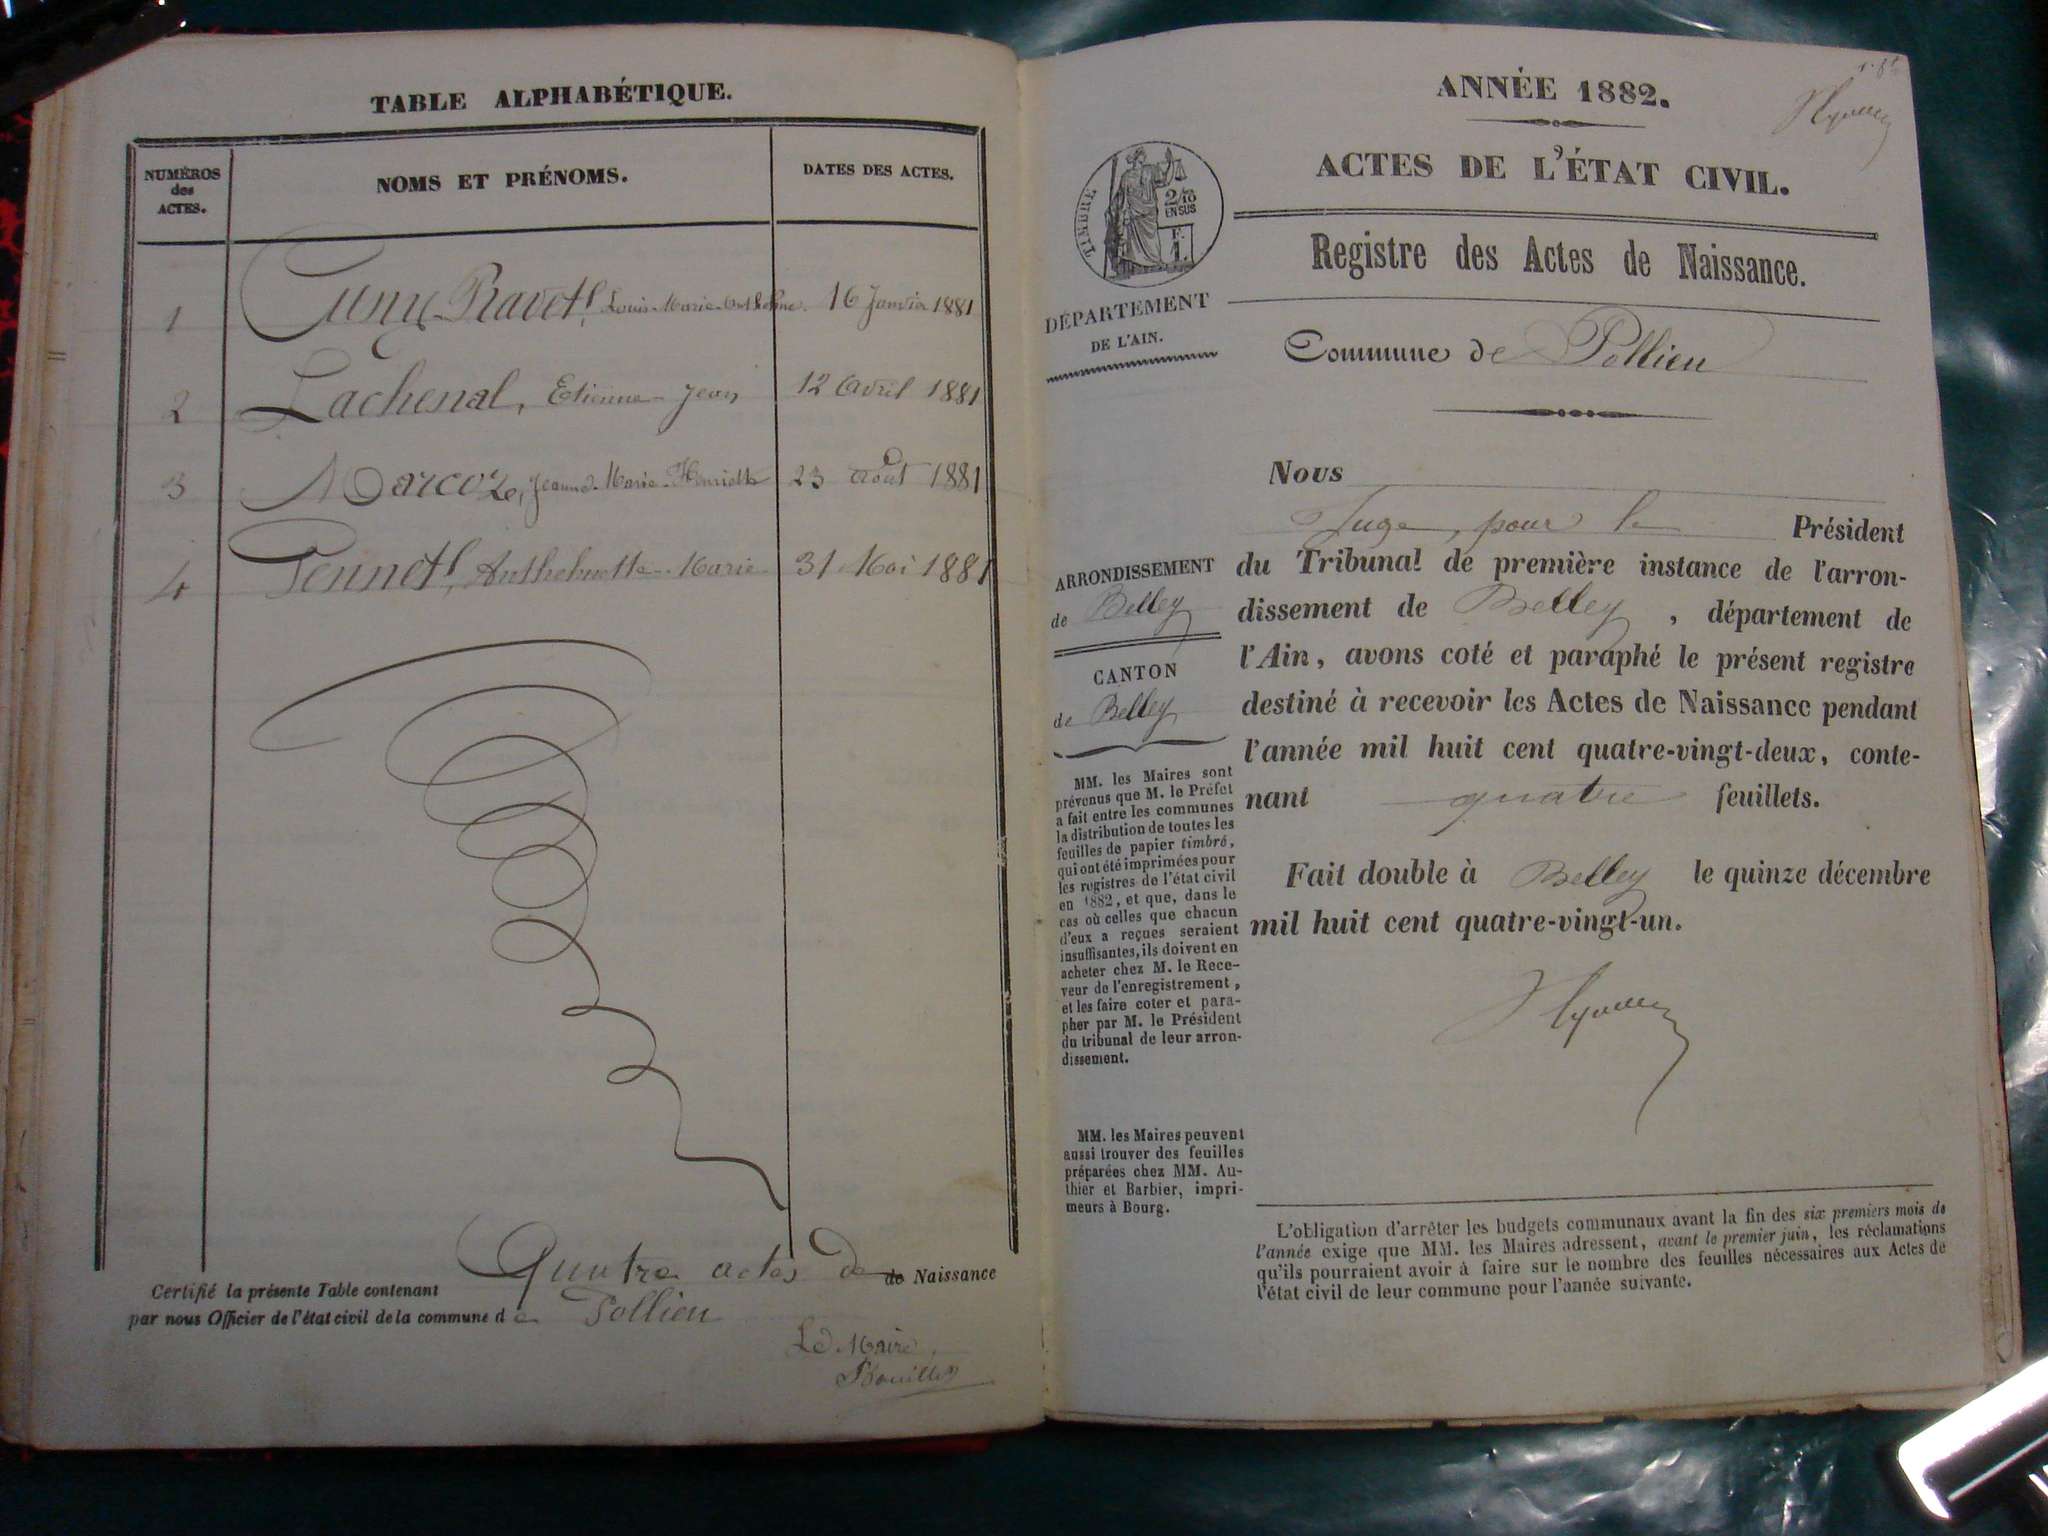 TABLE ALPHABÉTIQUE.
NUMÉROS
des
ACTES.
NOMS ET PRÉNOMS.
DATES DES ACTES.
1 Cuny-Ravet, Louis-Marie-Anthelme. 16 Janvier 1881
2 Lachenal, Etienne-Jean 12 Avril 1881
3 Marcoz, Jeanne-Marie-Henriette 23 Août 1881
4 Pennet, Anthelmette-Marie 31 Mai 1881
Certifié la présente Table contenant Quatre actes de de Naissance
par nous Officier de l'état civil de la commune de Pollieu
Le Maire,
ANNÉE 1882.
ACTES DE L'ÉTAT CIVIL.
TIMBRE
2/10
EN SUS
F.
1.
Registre des Actes de Naissance.
DÉPARTEMENT
DE L'AIN.
Commune de Pollieu
Nous
Juge, pour le Président
du Tribunal de première instance de l'arron-
dissement de Belley, département de
l'Ain, avons coté et paraphé le présent registre
destiné à recevoir les Actes de Naissance pendant
l'année mil huit cent quatre-vingt-deux, conte-
nant quatre feuillets.
Fait double à Belley le quinze décembre
mil huit cent quatre-vingt-un.
ARRONDISSEMENT
de Belley
CANTON
de Belley
MM. les Maires sont
prévenus que M. le Préfet
a fait entre les communes
la distribution de toutes les
feuilles de papier timbré,
qui ont été imprimées pour
les registres de l'état civil
en 1882, et que, dans le
cas où celles que chacun
d'eux a reçues seraient
insuffisantes, ils doivent en
acheter chez M. le Rece-
veur de l'enregistrement,
et les faire coter et para-
pher par M. le Président
du tribunal de leur arron-
dissement.
MM. les Maires peuvent
aussi trouver des feuilles
préparées chez MM. Au-
thier et Barbier, impri-
meurs à Bourg.
L'obligation d'arrêter les budgets communaux avant la fin des six premiers mois de
l'année exige que MM. les Maires adressent, avant le premier juin, les réclamations
qu'ils pourraient avoir à faire sur le nombre des feuilles nécessaires aux Actes de
l'état civil de leur commune pour l'année suivante.